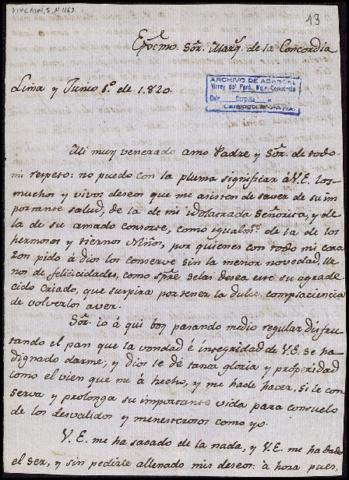 DIVERSOS, 5, Nº 1163
13
Excmo. Sor. Marqs. de la Concordia
Lima y Junio 1º de 1.820
ARCHIVO DE ABASCAL
Mi muy venerado amo Padre y Sor. de todo
mi respeto: no puedo con la pluma significar á V.E. los
muchos y vivos deseos que me asisten de saver de su im
portante salud, de la de mi idolatrada Señorita, y de
la de su amado consorte, como igualmte. de la de los
hermosos y tiernos Niños, por quienes con todo mi cora
zon pido á dios los conserve sin la menor novedad, lle
nos de felicidades, como spre. se las desea este su agrade
cido Criado, que suspira por tener la dulce complaciencia
de volverlos aver.
Sor. io á qui boy pasando medio regular disfru
tando el pan que la vondad é integridad de V.E. se ha
dignado darme; y dios le dé tanta gloria y prosperidad
como el vien que me á hecho, y me hace hacer, si le con
serva y prolonga su importante vida para consuelo
de los desvalidos y menesterosos como yo.
V.E. me ha sacado de la nada, y V.E. me ha dado
el ser, y sin pedirle allenado mis deseos: á hora pues,